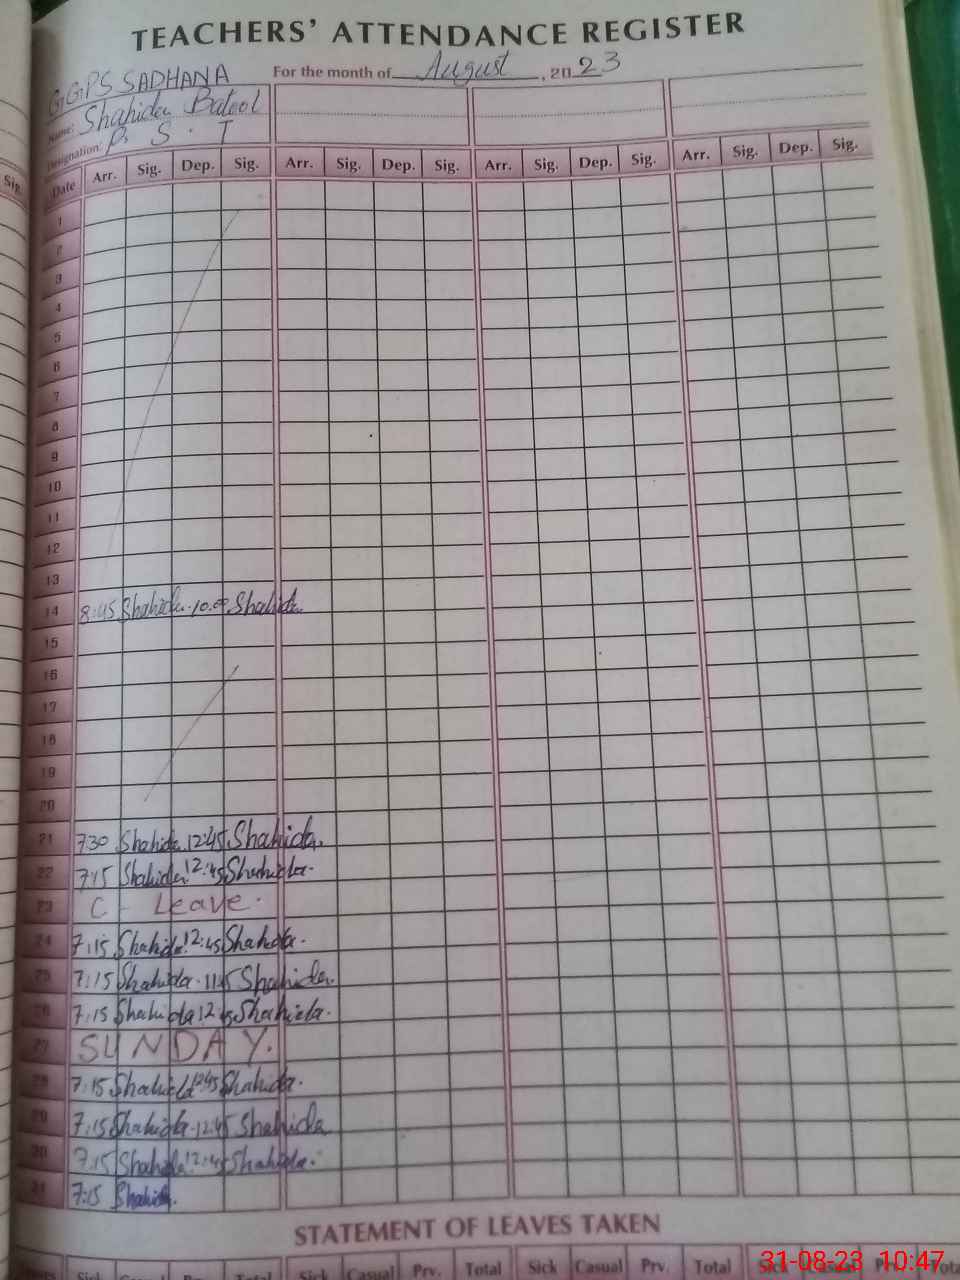 TEACHERS' ATTENDANCE REGISTER
G.G.PS SADHANA For the month of August, 2023
Name: Shahida Batool
Designation: P. S. T
Sig.
Date Arr. Sig. Dep. Sig. Arr. Sig. Dep. Sig. Arr. Sig. Dep. Sig. Arr. Sig. Dep. Sig.
1
2
3
4
5
6
7
8
9
10
11
12
13
14 8:45 Shahida. 10.00 Shahida.
15
16
17
18
19
20
21 7:30 Shahida. 12:45 Shahida.
22 7:15 Shahida. 12:45 Shahida.
23 C - Leave.
24 7:15 Shahida 12:45 Shahida.
25 7:15 Shahida. 11:45 Shahida.
26 7:15 Shahida 12:45 Shahida.
27 SUNDAY.
28 7:15 Shahida 12:45 Shahida.
29 7:15 Shahida. 12:45 Shahida
30 7:15 Shahida 12:45 Shahida.
31 7:15 Shahida.
STATEMENT OF LEAVES TAKEN
Sick Casual Prv. Total Sick Casual Prv. Total Sick Casual Prv. Total Sick
31-08-23 10:47